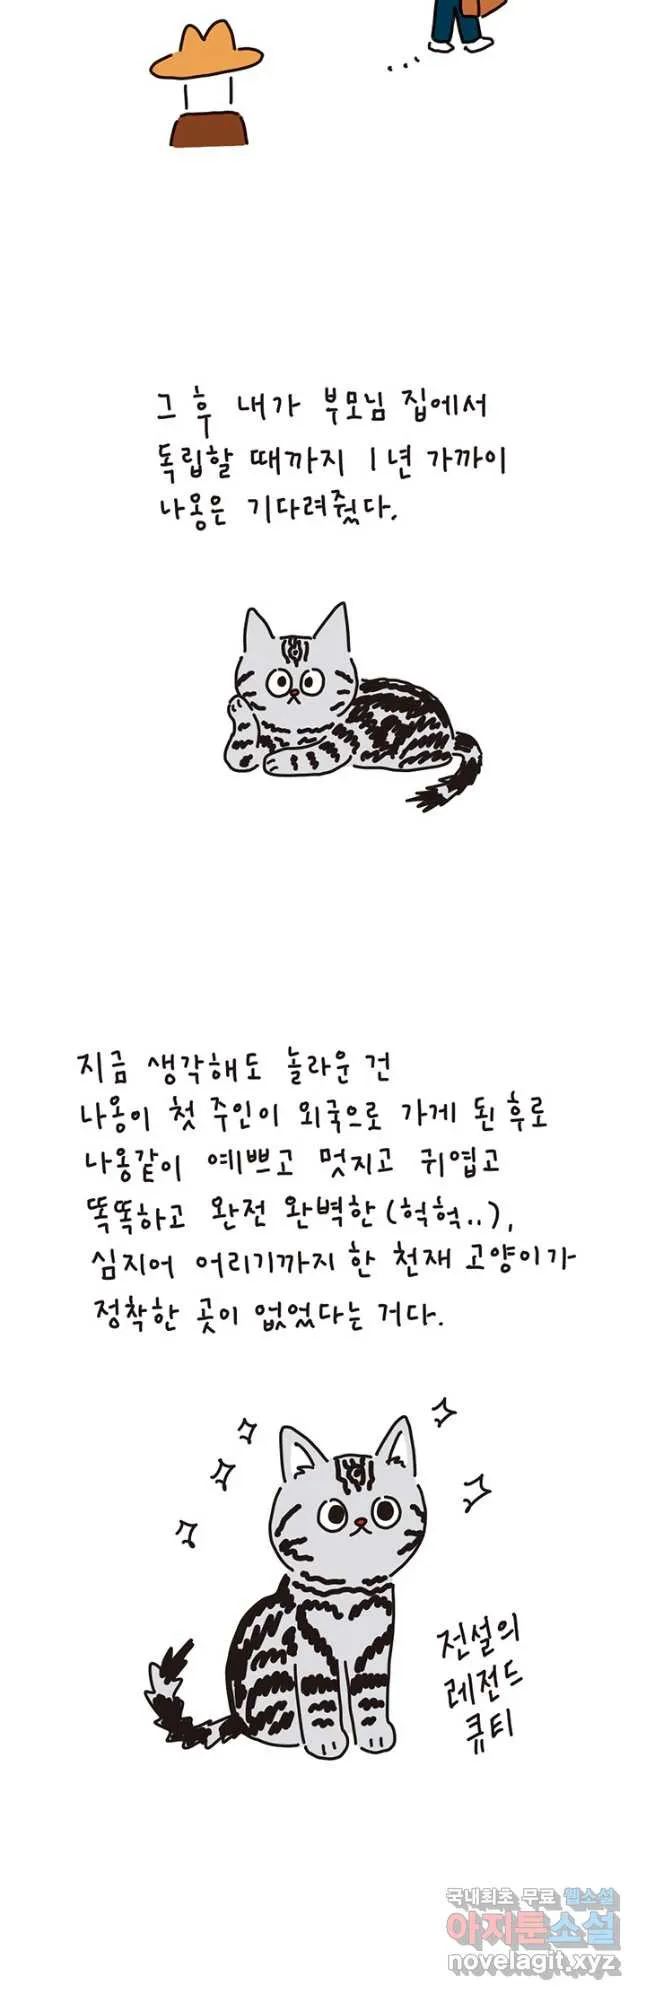 그 후 내가 부모님 집에서
독립할 때까지 1년 가까이
나옹은 기다려줬다.
지금 생각해도 놀라운 건
나옹이 첫 주인이 외국으로 가게 된 후로
나옹같이 예쁘고 멋지고 귀엽고
똑똑하고 완전 완벽한(헉헉..),
심지어 어리기까지 한 천재 고양이가
정착한 곳이 없었다는 거다.
전설의
레전드
큐티
국내최초 무료 웹소설
아지툰소설
novelagit.xyz